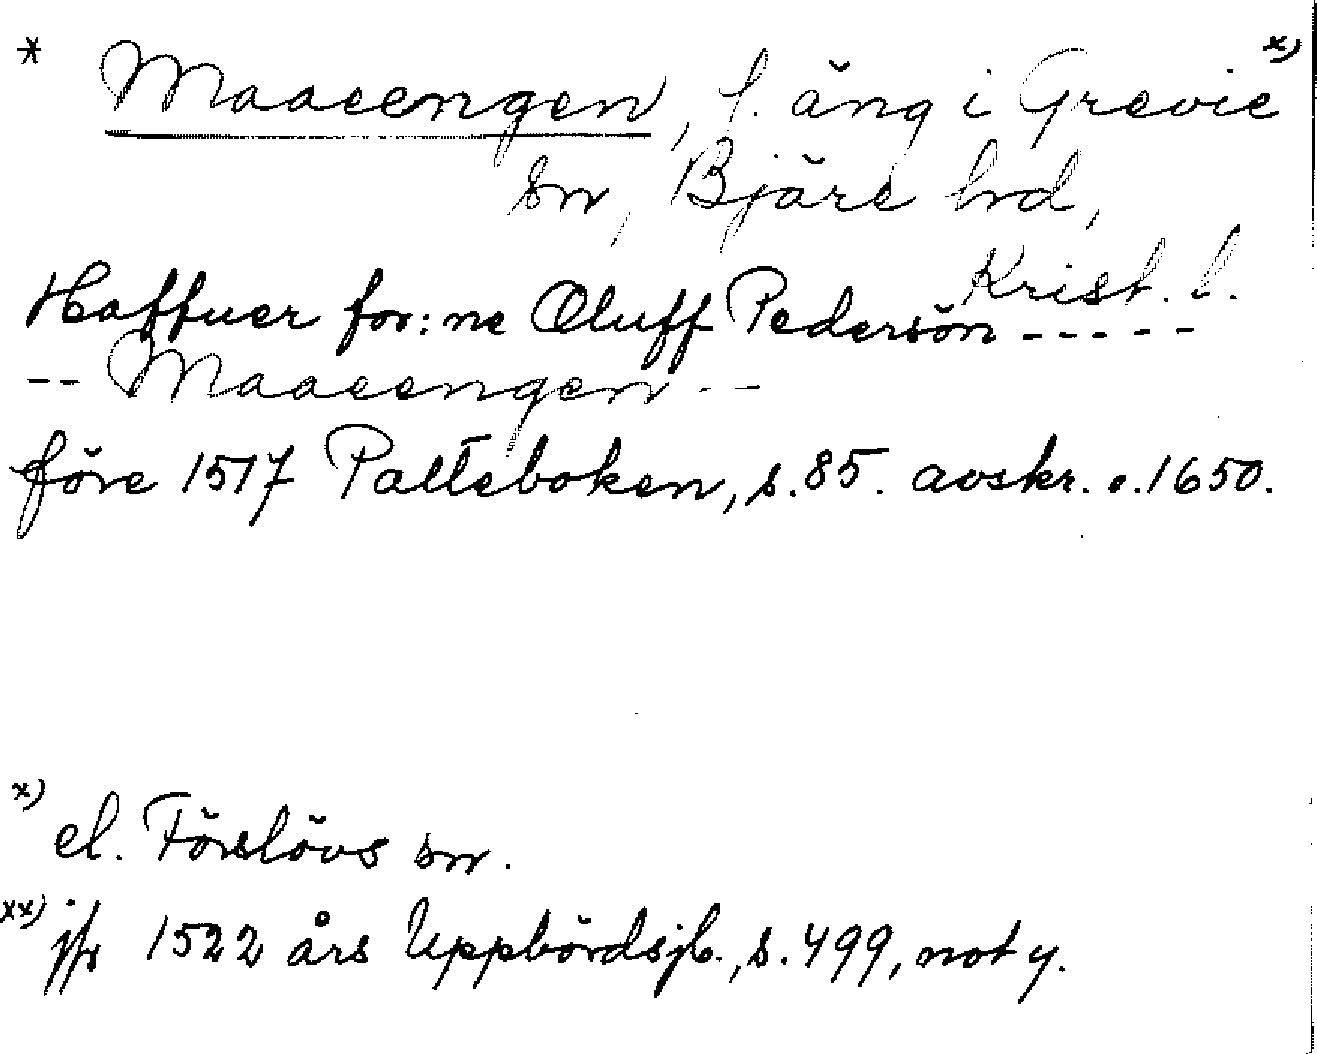 * Maaeengen, f. äng i Grevie x)
sn, Bjäre hrd,
Krist. l.
Haffuer for:ne Oluff Pedersön -----
-- Maaeengen --
före 1517 Palteboken, s. 85. avskr. c. 1650.
x) el. Förslövs sn.
xx) jfr 1522 års Uppbördsjb., s. 499, not y.